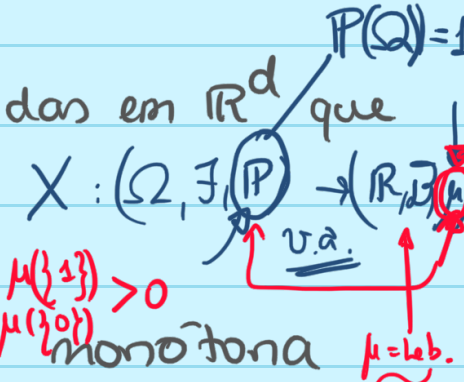 P(Ω)=1
das em ℝᵈ que
X : (Ω, F, P) → (ℝ, B, μ
v.a.
μ({1}) > 0
μ({0})
monótona
μ=Leb.